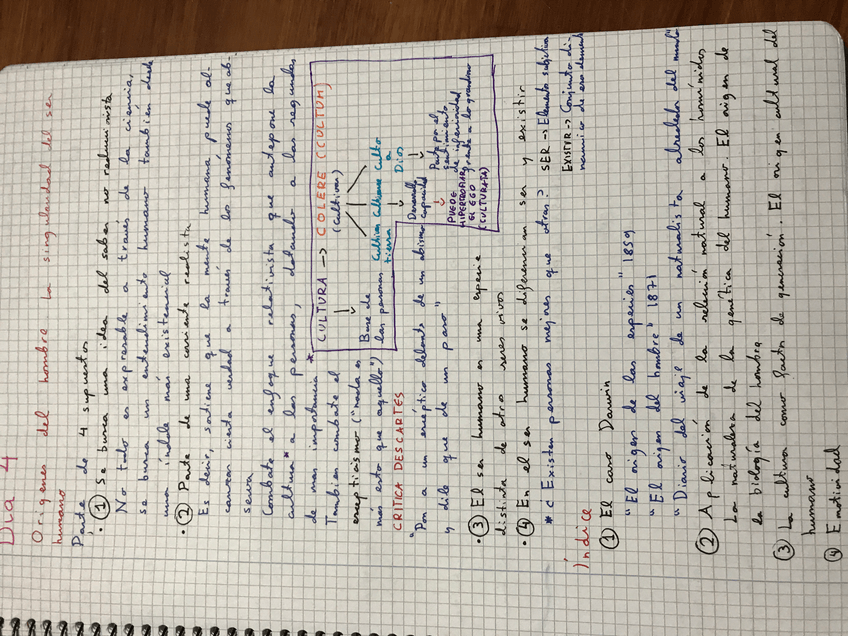 Día 4
Orígenes del hombre. La singularidad del ser
humano
Parte de 4 supuestos
· ① Se busca una idea del saber no reducionista
No todo es expresable a través de la ciencia,
se busca un entendimiento humano también desde
una índole más existencial
· ② Parte de una corriente realista
Es decir, sostiene que la mente humana puede al-
canzar cierta verdad a través de los fenómenos que ob-
serva
Combate el enfoque relativista que antepone la
cultura* a las personas, dotando a las segundas
de mas importancia *
También combate el
escepticismo ("nada es
más esto que aquello")
CRÍTICA DESCARTES
"Pon a un escéptico delante de un abismo
y dile que de un paso"
CULTURA → COLERE (CULTUM)
(Cultivar)
Base de
las personas
Cultivar
tierra
Cultivarse
Culto
a
Dios
Desarrollo
capacidad
Parte por el
sentimiento
de inferioridad
frente a lo grandioso
PUEDE
HIPERTROFIAR
EL EGO
(CULTURATA)
· ③ El ser humano es una especie
distinta de otros seres vivos
· ④ En el ser humano se diferencian ser y existir
* ¿Existen personas mejores que otras?
SER → Elemento subjetivo
EXISTIR → Conjunto di-
námico de ese elemento
Índice
① El caso Darwin
"El origen de las especies" 1859
"El origen del hombre" 1871
"Diario del viaje de un naturalista alrededor del mundo"
② Aplicación de la selección natural a los homínidos
La naturaleza de la genética del humano. El origen de
la biología del hombre
③ La cultura como factor de generación. El origen cultural del
humano
④ Emotividad